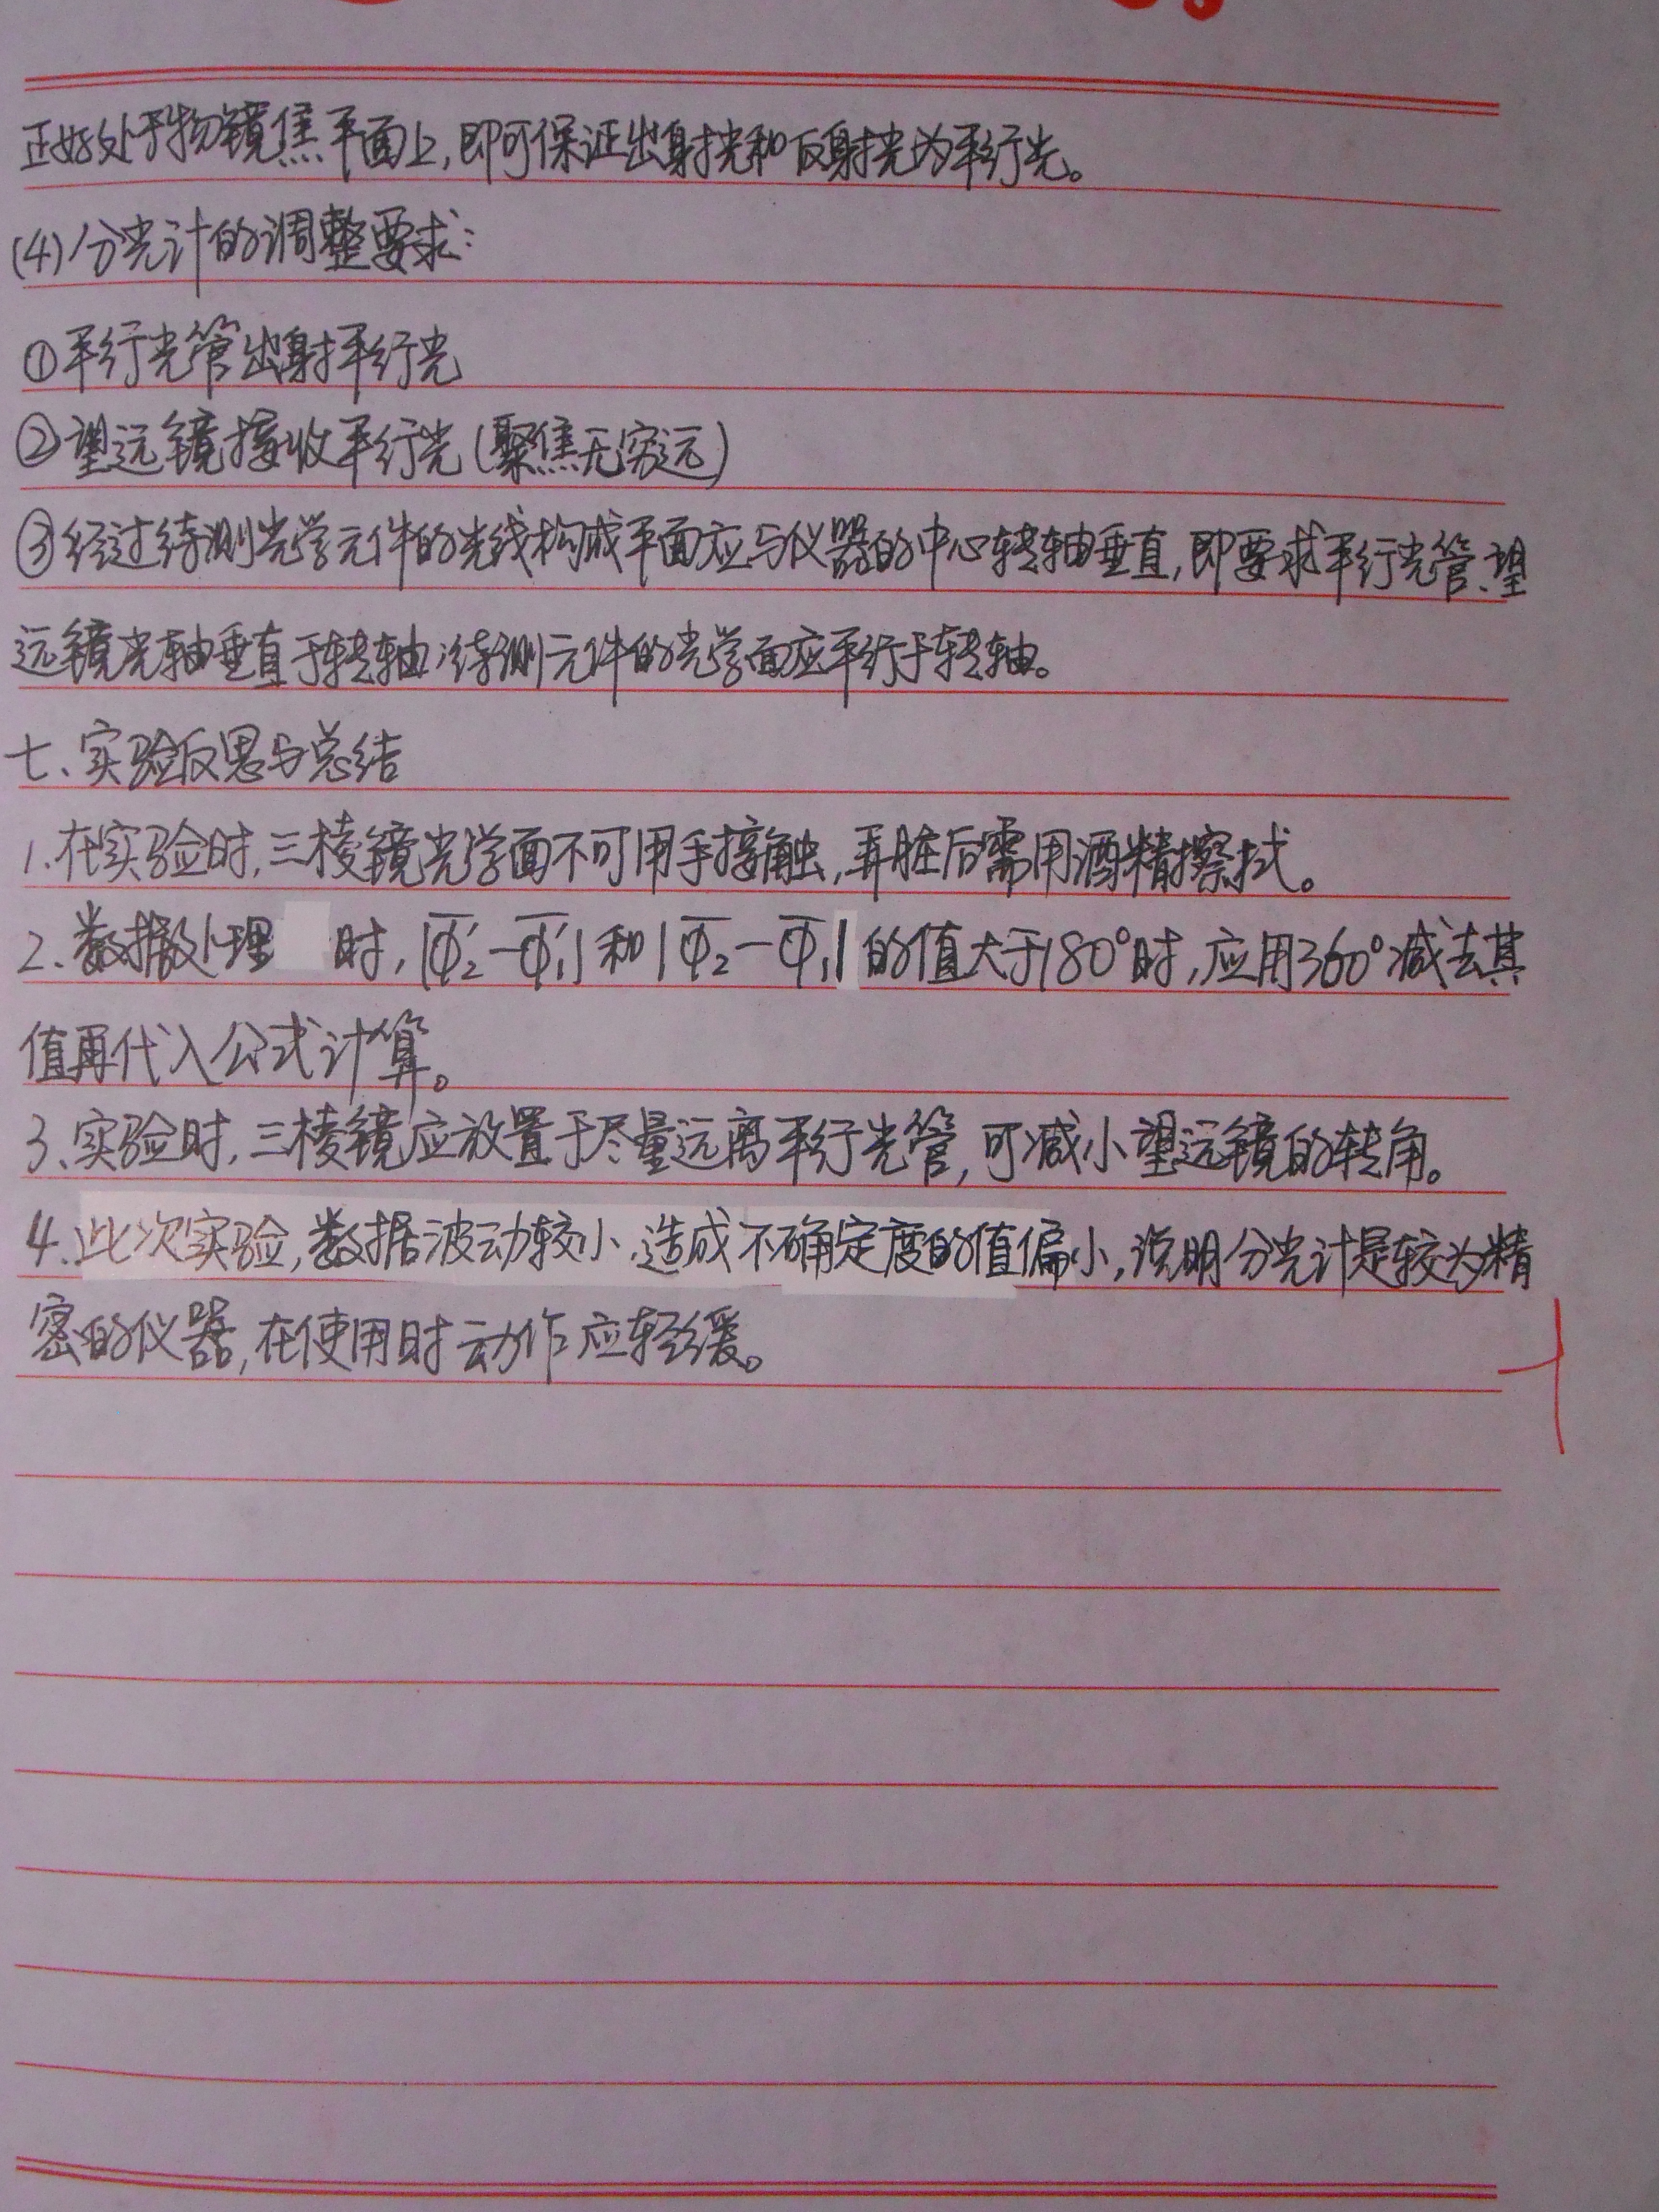 正好处于物镜焦平面上,即可保证出射光和反射光为平行光。
(4)分光计的调整要求:
①平行光管出射平行光
②望远镜接收平行光(聚焦无穷远)
③经过待测光学元件的光线构成平面应与仪器的中心转轴垂直,即要求平行光管、望
远镜光轴垂直于转轴;待测元件的光学面应平行于转轴。
七、实验反思与总结
1.在实验时,三棱镜光学面不可用手接触,弄脏后需用酒精擦拭。
2、数据处理 时,|Φ̅₂′-Φ̅₁′|和|Φ̅₂-Φ̅₁|的值大于180°时,应用360°减去其
值再代入公式计算。
3、实验时,三棱镜应放置于尽量远离平行光管,可减小望远镜的转角。
4.此次实验,数据波动较小,造成不确定度的值偏小,说明分光计是较为精
密的仪器,在使用时动作应轻缓。